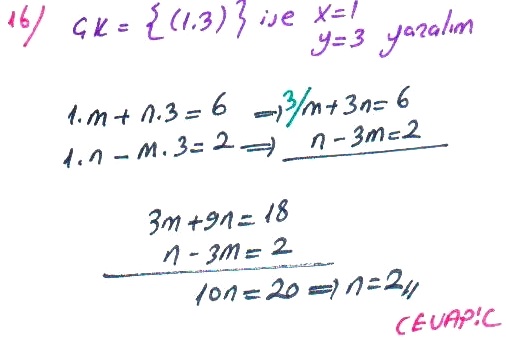 16) GK = {(1.3)} ise x=1
y=3 yazalım
1.m + n.3 = 6 ⇒ 3/ m+3n=6
1.n - m.3 = 2 ⇒ n-3m=2
3m+9n=18
n-3m=2
10n=20 ⇒ n=2//
CEVAP:C